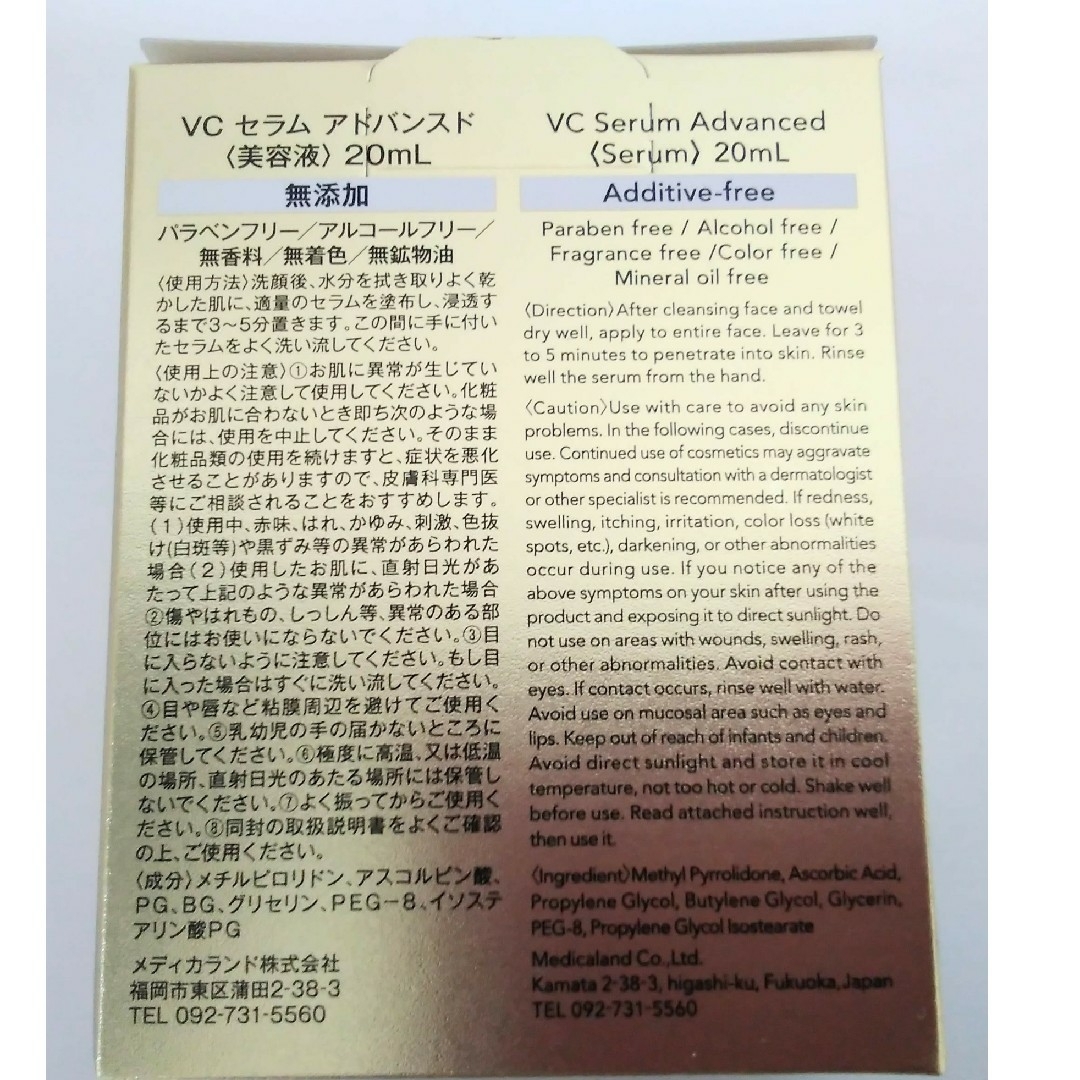 VC セラム アドバンスド
〈美容液〉 20mL
無添加
パラベンフリー／アルコールフリー／
無香料／無着色／無鉱物油
〈使用方法〉洗顔後、水分を拭き取りよく乾
かした肌に、適量のセラムを塗布し、浸透す
るまで3〜5分置きます。この間に手に付い
たセラムをよく洗い流してください。
〈使用上の注意〉①お肌に異常が生じてい
ないかよく注意して使用してください。化粧
品がお肌に合わないとき即ち次のような場
合には、使用を中止してください。そのまま
化粧品類の使用を続けますと、症状を悪化
させることがありますので、皮膚科専門医
等にご相談されることをおすすめします。
(1)使用中、赤味、はれ、かゆみ、刺激、色抜
け(白斑等)や黒ずみ等の異常があらわれた
場合(2)使用したお肌に、直射日光があ
たって上記のような異常があらわれた場合
②傷やはれもの、しっしん等、異常のある部
位にはお使いにならないでください。③目
に入らないように注意してください。もし目
に入った場合はすぐに洗い流してください。
④目や唇など粘膜周辺を避けてご使用く
ださい。⑤乳幼児の手の届かないところに
保管してください。⑥極度に高温、又は低温
の場所、直射日光のあたる場所には保管し
ないでください。⑦よく振ってからご使用く
ださい。⑧同封の取扱説明書をよくご確認
の上、ご使用ください。
〈成分〉メチルピロリドン、アスコルビン酸、
PG、BG、グリセリン、PEG－8、イソステ
アリン酸PG
メディカランド株式会社
福岡市東区蒲田2-38-3
TEL 092-731-5560
VC Serum Advanced
〈Serum〉 20mL
Additive-free
Paraben free / Alcohol free /
Fragrance free /Color free /
Mineral oil free
〈Direction〉After cleansing face and towel
dry well, apply to entire face. Leave for 3
to 5 minutes to penetrate into skin. Rinse
well the serum from the hand.
〈Caution〉Use with care to avoid any skin
problems. In the following cases, discontinue
use. Continued use of cosmetics may aggravate
symptoms and consultation with a dermatologist
or other specialist is recommended. If redness,
swelling, itching, irritation, color loss (white
spots, etc.), darkening, or other abnormalities
occur during use. If you notice any of the
above symptoms on your skin after using the
product and exposing it to direct sunlight. Do
not use on areas with wounds, swelling, rash,
or other abnormalities. Avoid contact with
eyes. If contact occurs, rinse well with water.
Avoid use on mucosal area such as eyes and
lips. Keep out of reach of infants and children.
Avoid direct sunlight and store it in cool
temperature, not too hot or cold. Shake well
before use. Read attached instruction well,
then use it.
〈Ingredient〉Methyl Pyrrolidone, Ascorbic Acid,
Propylene Glycol, Butylene Glycol, Glycerin,
PEG-8, Propylene Glycol Isostearate
Medicaland Co.,Ltd.
Kamata 2-38-3, higashi-ku, Fukuoka,Japan
TEL 092-731-5560